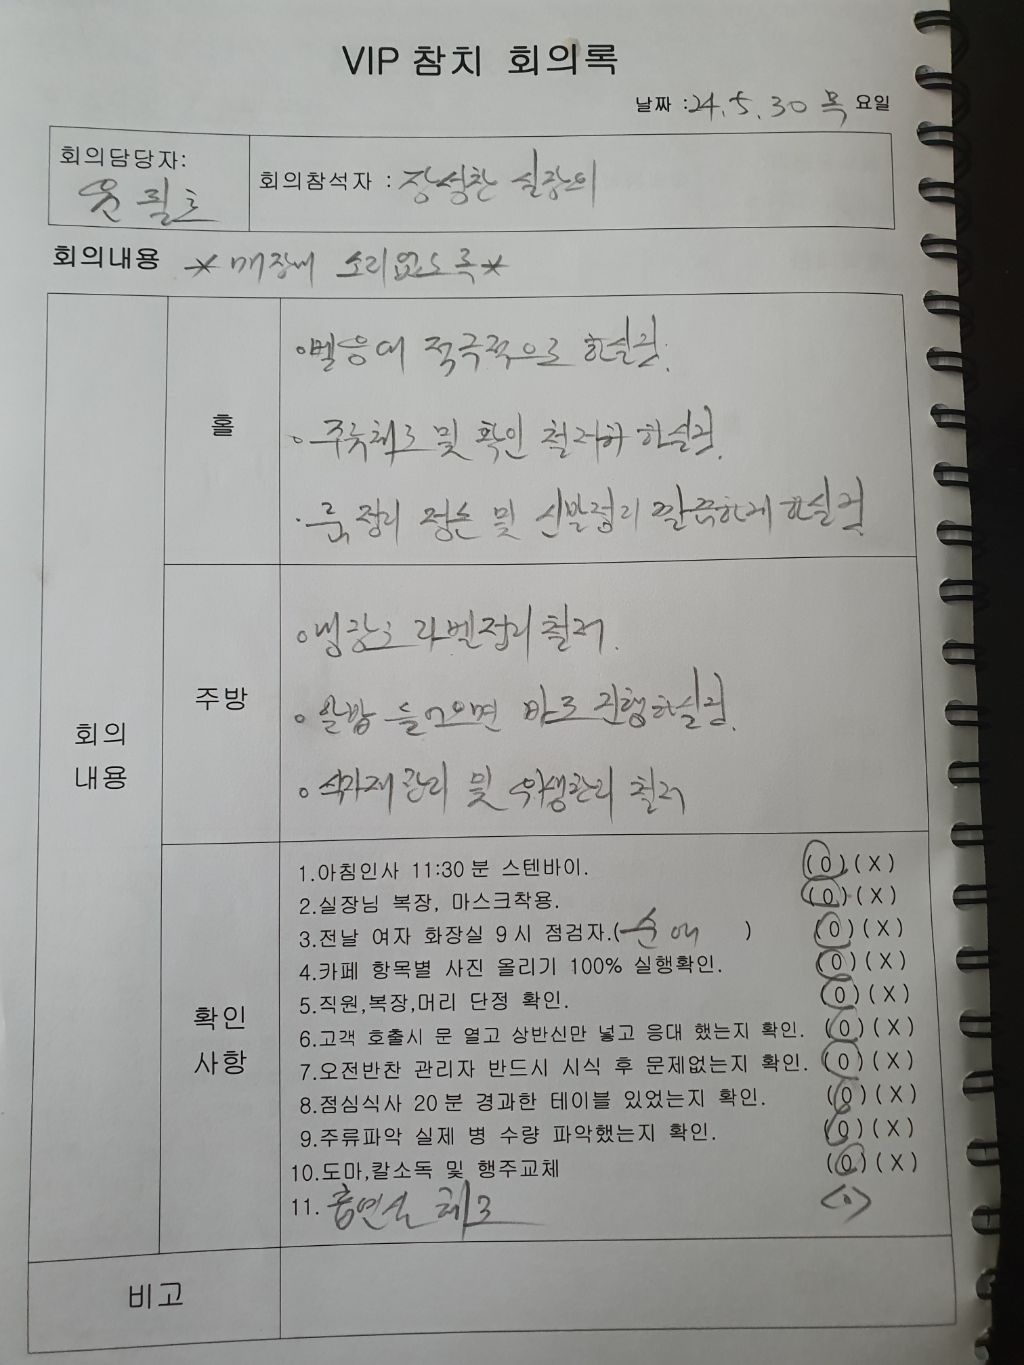 VIP 참치 회의록
날짜 : 24. 5. 30 목 요일
회의담당자:
회의참석자 : 장성찬 실장외
회의내용 * 매장내 소리없도록 *
홀
◦벨응대 적극적으로 하실것.
◦ 주문체크 및 확인 철저하 하실것.
· 룸 정리 정돈 및 신발정리 깔끔하게 하실것
주방
◦냉장고 라벨정리 철저.
◦ 알밥 들어오면 바로 진행하실것.
◦ 식자재관리 및 위생관리 철저
회의
내용
확인
사항
1.아침인사 11:30분 스텐바이. (O)(X)
2.실장님 복장, 마스크착용. (O)(X)
3.전날 여자 화장실 9시 점검자.(순애 ) (O)(X)
4.카페 항목별 사진 올리기 100% 실행확인. (O)(X)
5.직원,복장,머리 단정 확인. (O)(X)
6.고객 호출시 문 열고 상반신만 넣고 응대 했는지 확인. (O)(X)
7.오전반찬 관리자 반드시 시식 후 문제없는지 확인. (O)(X)
8.점심식사 20분 경과한 테이블 있었는지 확인. (O)(X)
9.주류파악 실제 병 수량 파악했는지 확인. (O)(X)
10.도마,칼소독 및 행주교체 (O)(X)
11. 흡연실 체크 (O)
비고